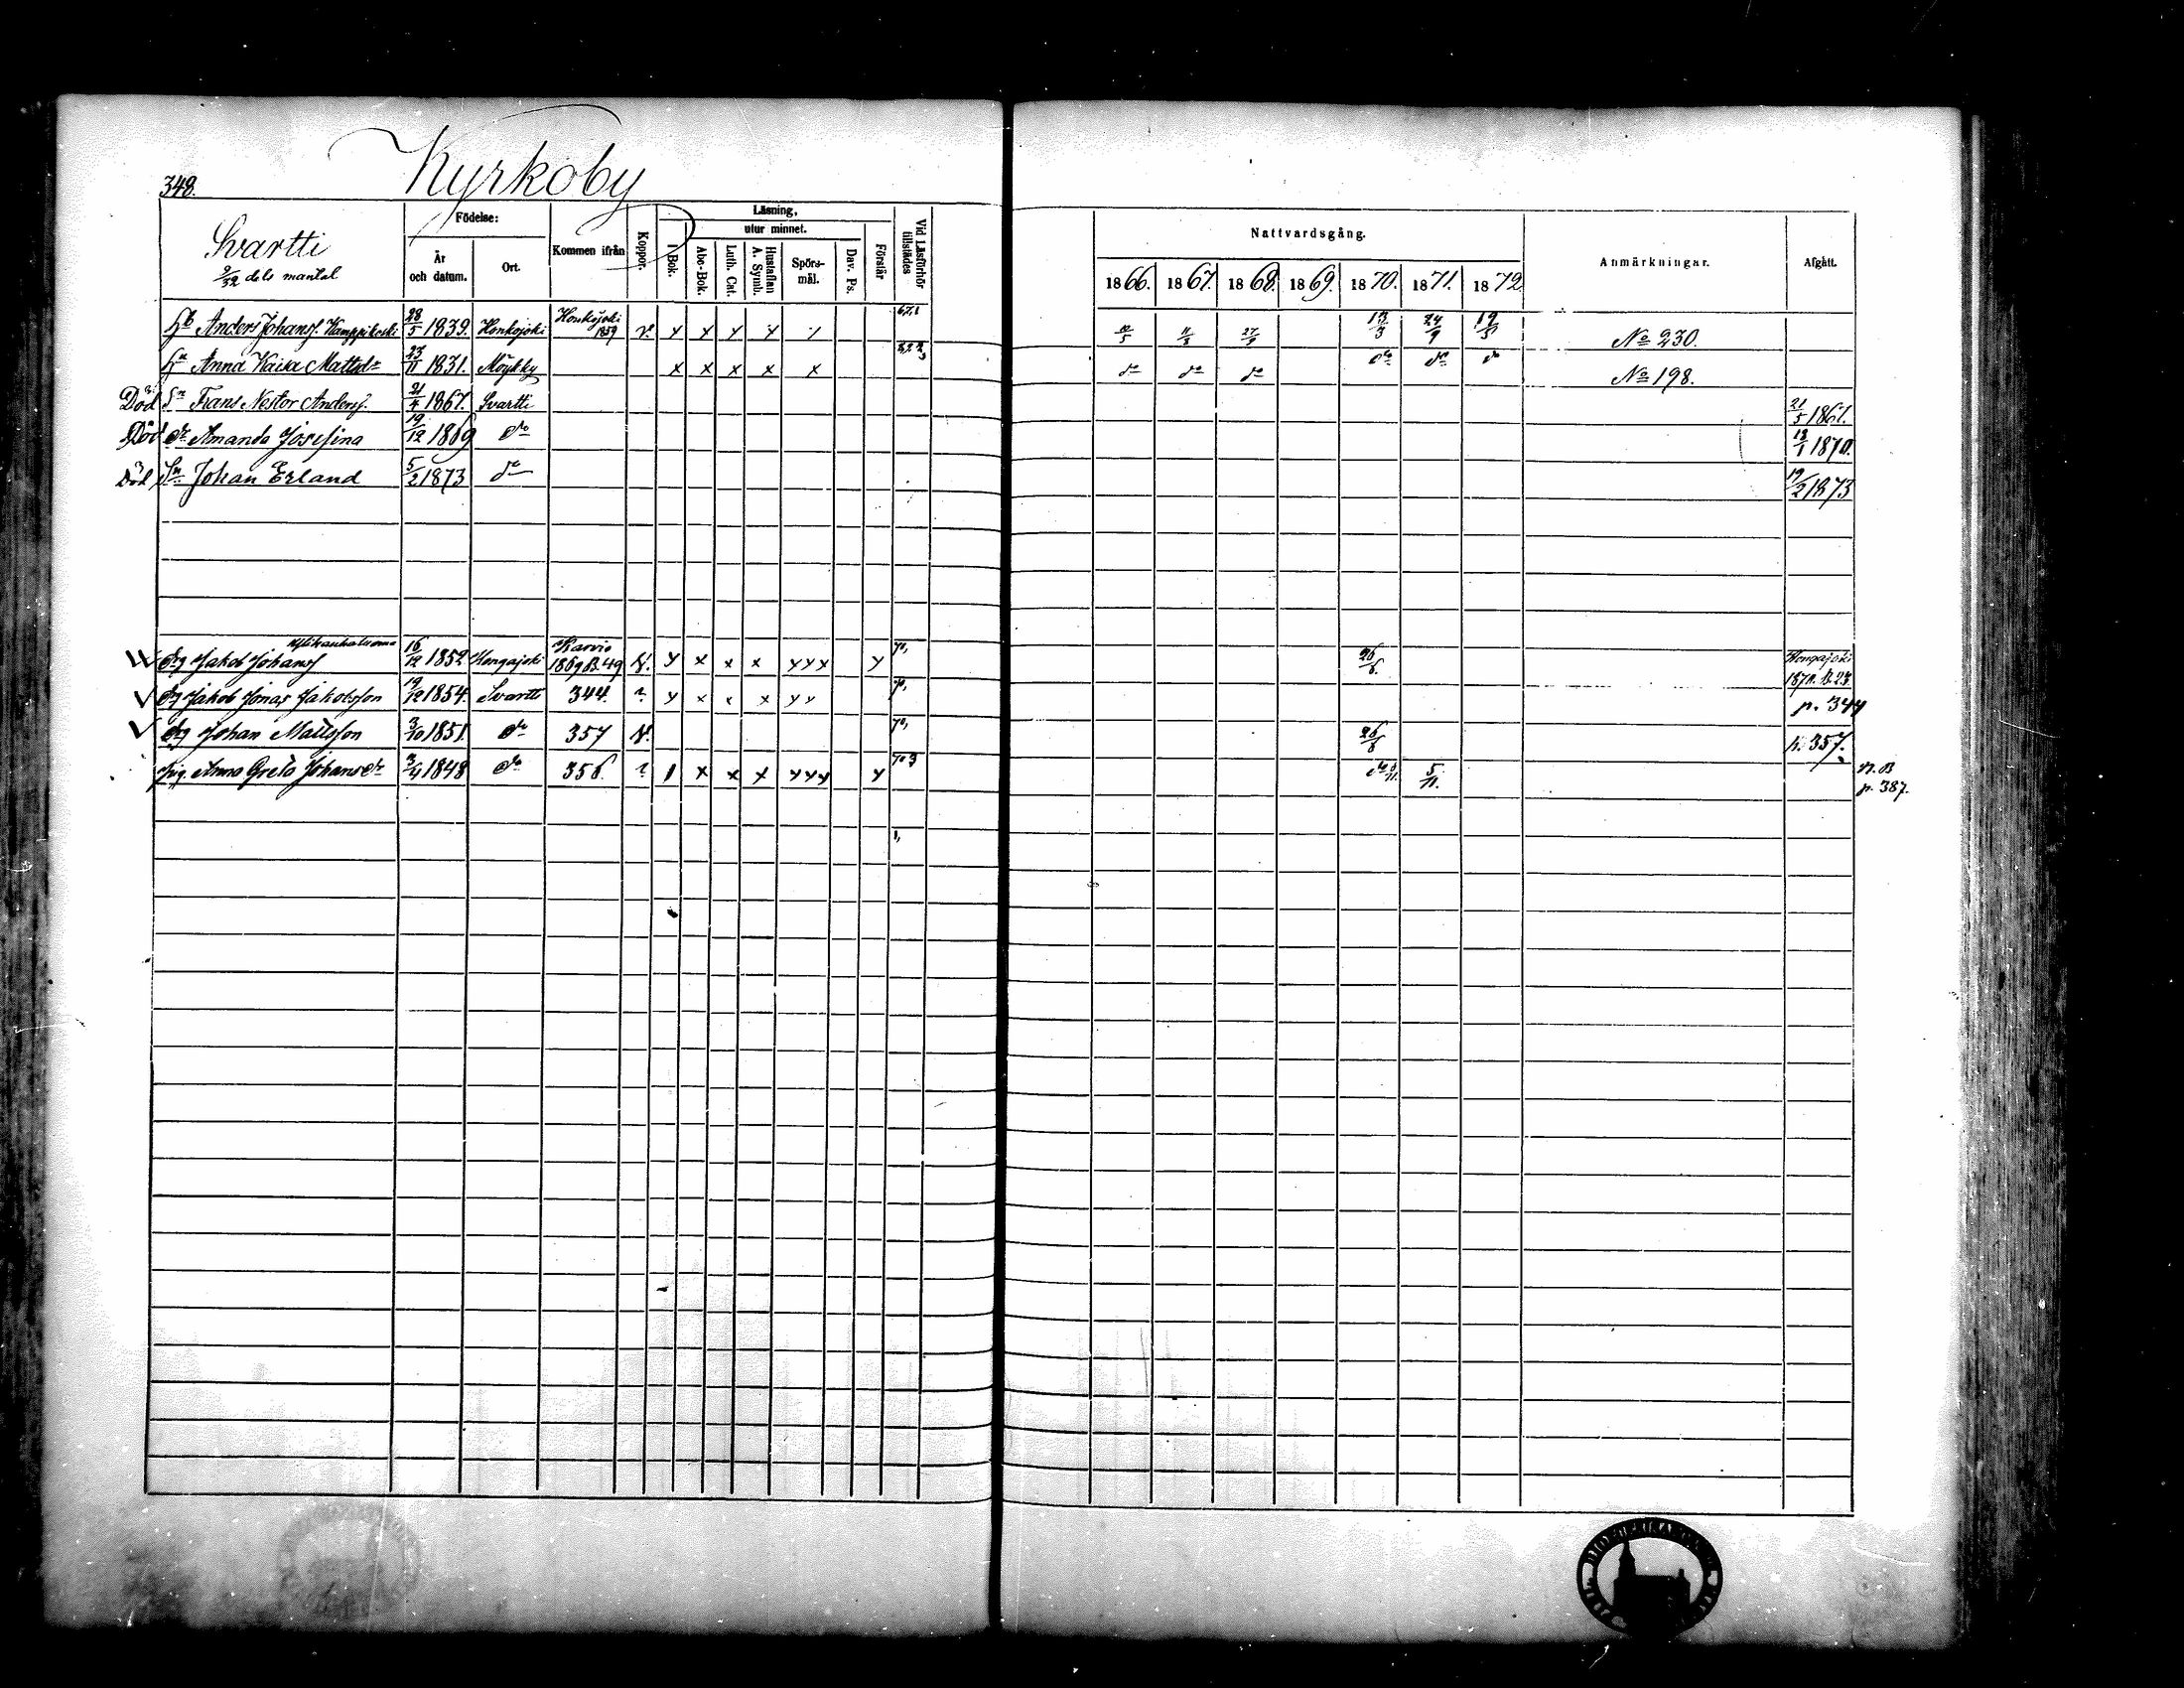 348. Kyrkoby
Svartti
dels mantal
Födelse:
År och datum.
Ort.
Kommen ifrån
Koppor.
Läsning,
I Bok.
utur minnet.
Abc-Bok.
Luth. Cat.
Hustaflan A. Symb.
Spörs-mål.
Dav. Ps.
Förstår
Vid Läsförhör tillstädes
Nattvardsgång.
1866. 1867. 1868. 1869. 1870. 1871. 1872
Anmärkningar.
Afgått.
Anders Johanss. 28/5 1839. Honkojoki Honkojoki 1859 v. y x y y 13/3 24/9 19/5 No 230.
Anna Kaisa Mattsdr 23/11 1831. Möykky x x x x x do do do do do do No 198.
Död Sn Frans Nestor Anderss. 21/4 1867. Svartti 21/5 1867.
Död dr Amanda Josefina 19/12 1869 do 13/1 1870.
Död Sn Johan Erland 5/2 1873 do 19/2 1873
Drg Jakob Johanss 16/12 1852 Hongajoki Karvio 1869 B. 49 N. y x x x y y x y 70, 26/6 Hongajoki 1870. B. 23.
Drg Jakob Jonas Jakobsson 19/12 1854. Svartti 344. ? y x x x y y 7, p. 344
Drg Johan Mattsson 3/10 1851. do 357 N. 70, 26/6 p. 357.
Pig. Anna Greta Johansdr 3/4 1848 do 356. ? x x x y y y y 5/11. n. B p. 387.
1,